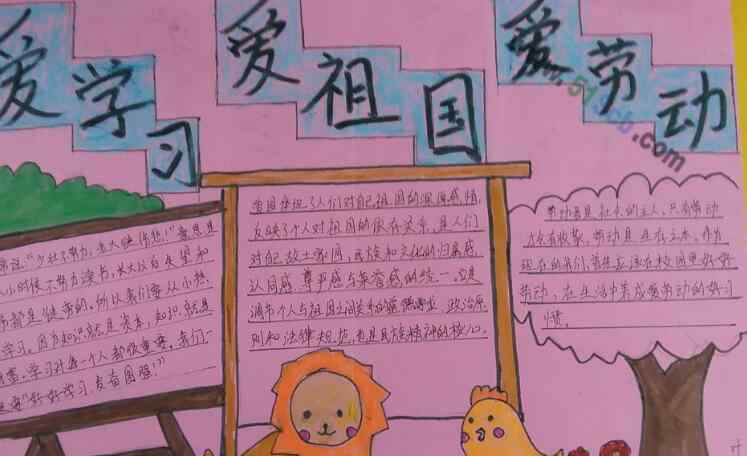 爱学习
爱祖国
爱劳动
www.51scb.com
常说:“少壮不努力,老大徒伤悲!”意思是
人小时候不努力读书,长大以后失望和
都是徒劳的。所以我们要从小热
学习。因为知识就是资本,知识就是
财富。学习对每一个人都很重要,我们一
定要“好好学习,发奋图强!”
爱国体现了人们对自己祖国的深厚感情,
反映了个人对祖国的依存关系,是人们
对自己故土家园、民族和文化的归属感、
认同感、尊严感与荣誉感的统一。它是
调节个人与祖国之间关系的道德要求、政治原
则和法律规范,也是民族精神的核心。
劳动者是社会的主人,只有劳动
才会有收获,劳动是生存之本。作为
现在的我们,首先应该在校园里好好
劳动,在生活中养成爱劳动的好习
惯。
叶